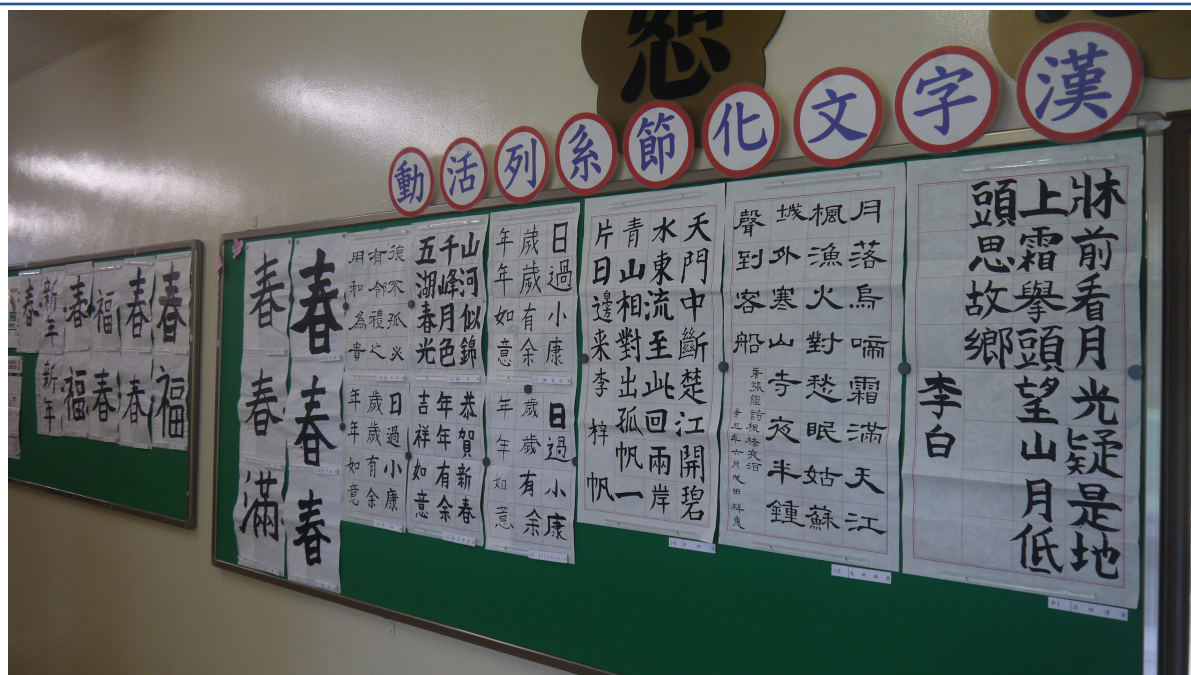 恕
漢字文化節系列活動
牀前看月光疑是地
上霜擧頭望山月低
頭思故鄉
李白
月落烏啼霜滿天江
楓漁火對愁眠姑蘇
城外寒山寺夜半鍾
聲到客船
張繼詩楓橋夜泊
辛丑年六月
天門中斷楚江開碧
水東流至此回兩岸
青山相對出孤帆一
片日邊来李梓帆
日過小康
歲歲有余
年年如意
日過小康
歲歲有余
年年如意
山河似錦
千峰月色
五湖春光
恭賀新春
年年有余
吉祥如意
德不孤必
有鄰禮之
用和為貴
日過小康
歲歲有余
年年如意
春
春
春
春
春
滿
春
春
福
春
新年
春
福
春
春
福
新年